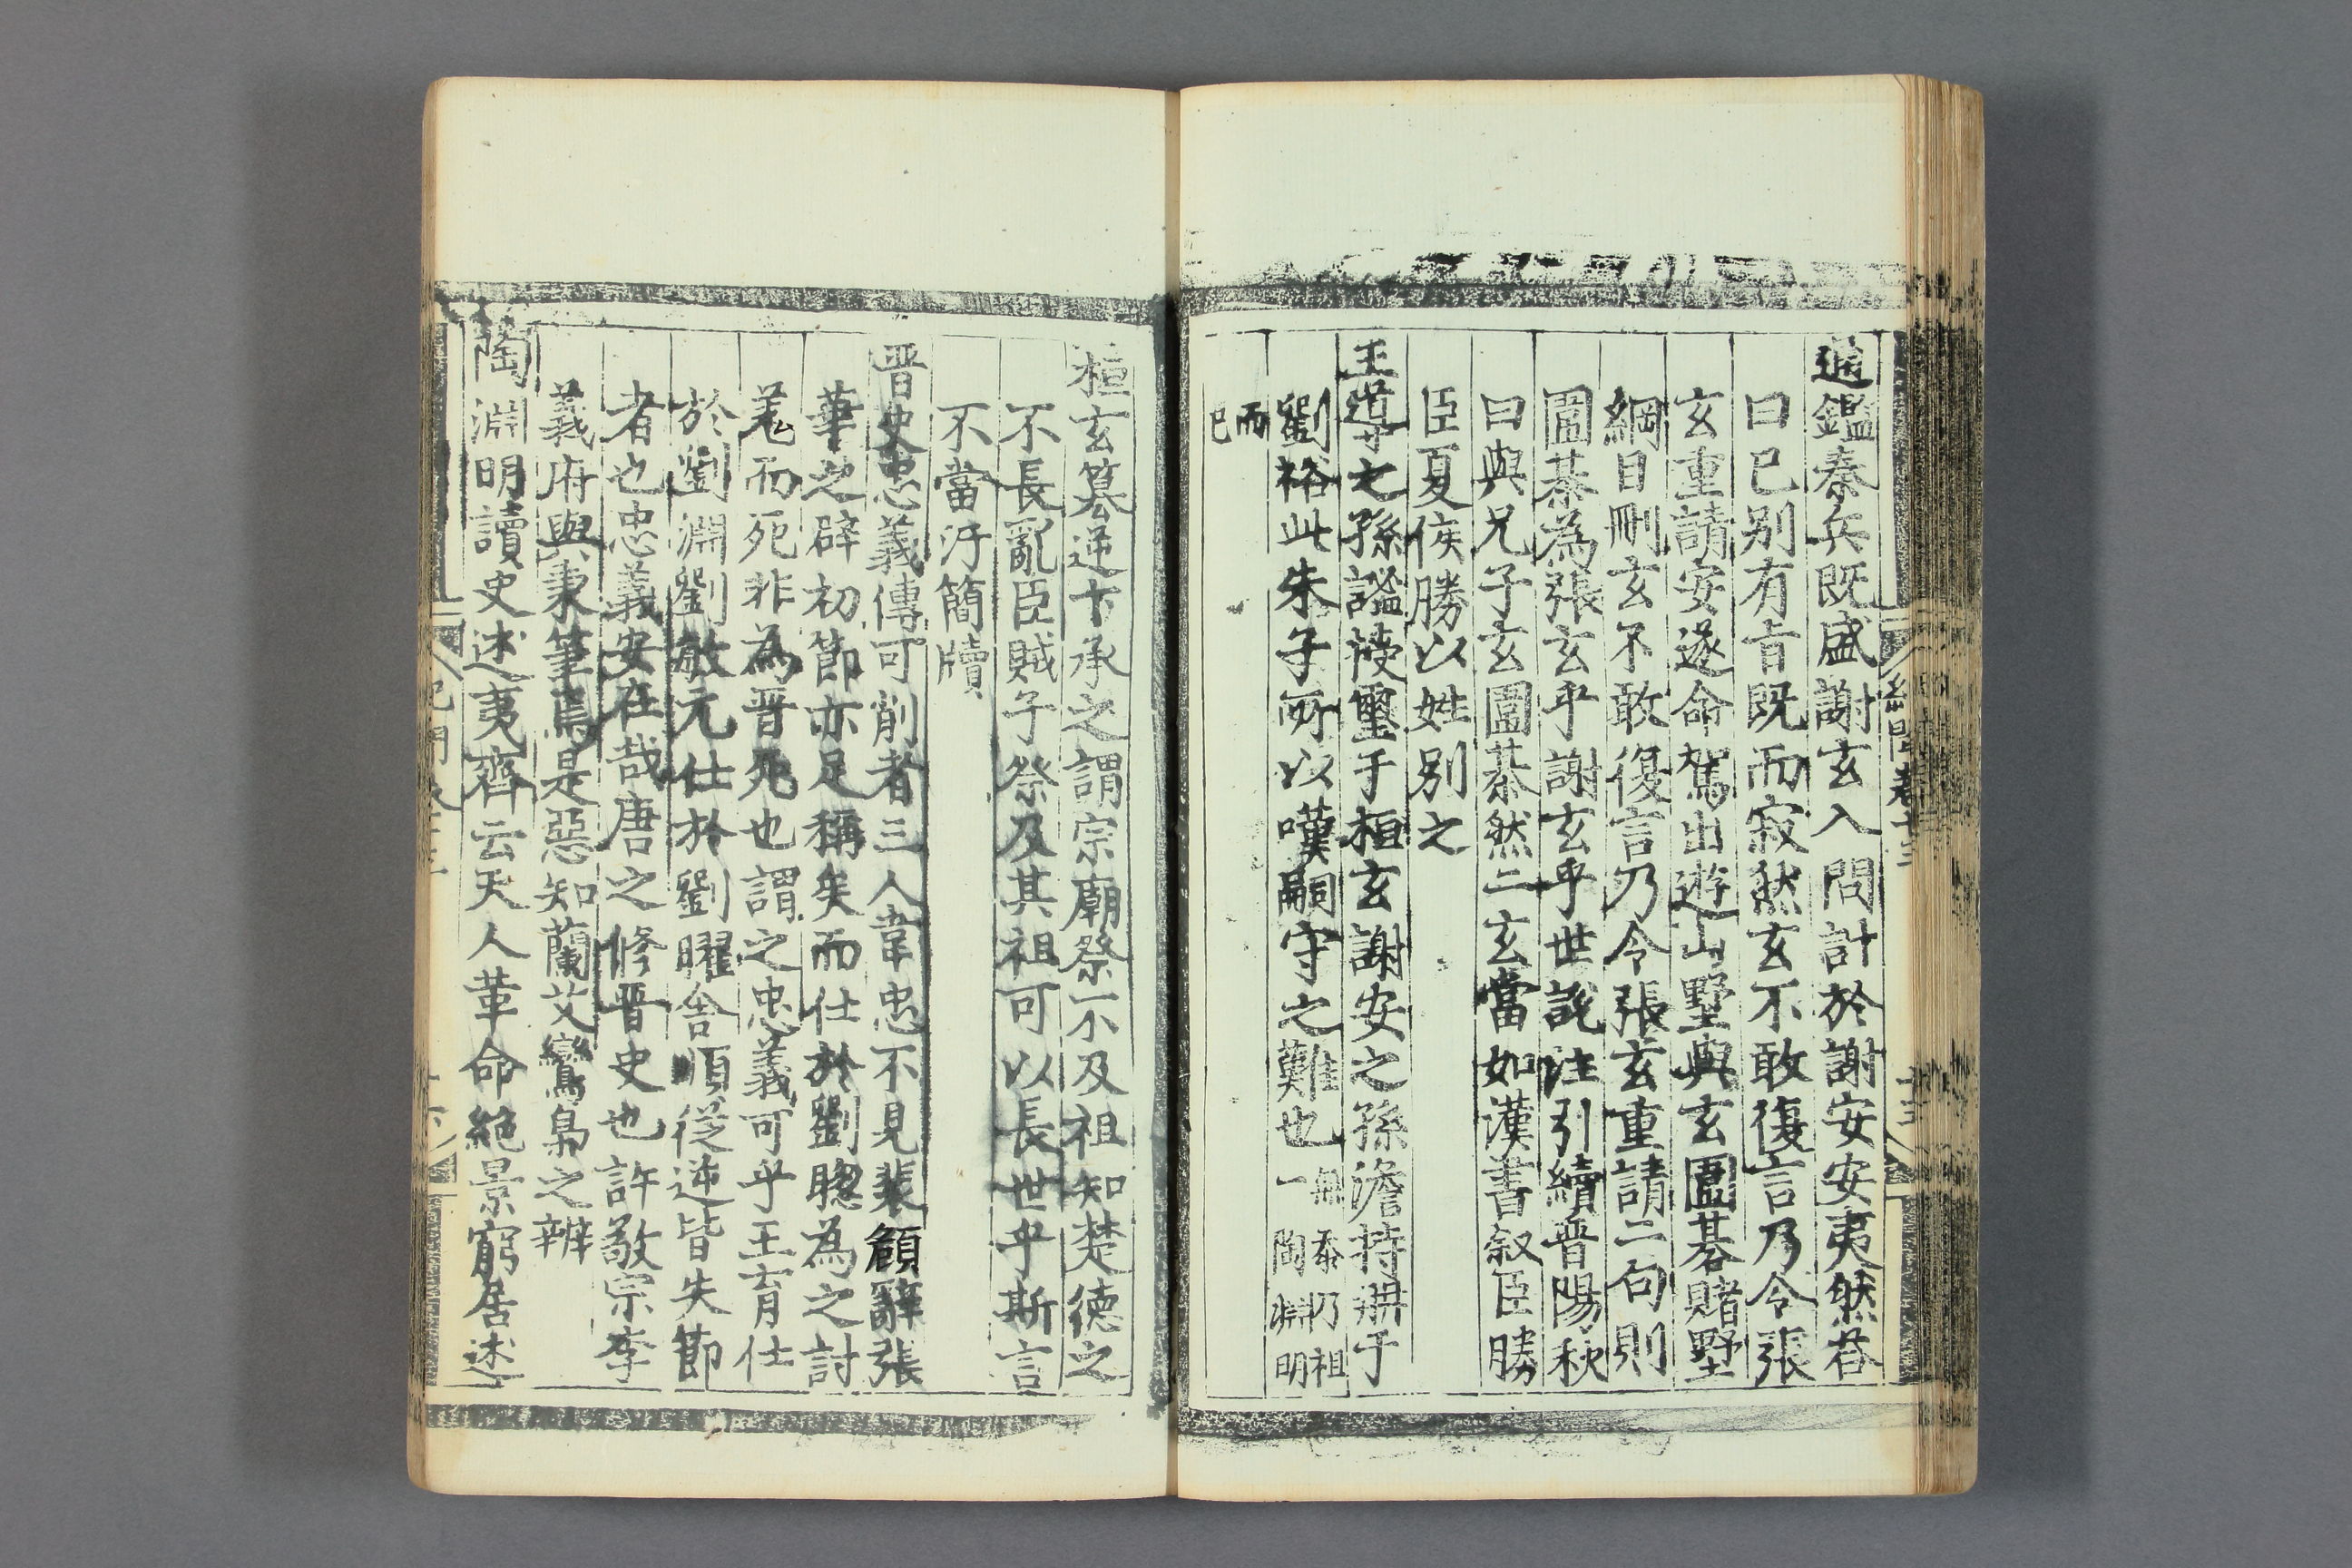 通鑑秦兵既盛謝玄入問計於謝安安夷然荅
曰已别有旨既而寂然玄不敢復言乃令張
玄重請安遂命駕出遊山墅與玄圍碁賭墅
綱目刪玄不敢復言乃令張玄重請二句則
圍棊為張玄乎謝玄乎世說注引續晋陽秋
曰與兄子玄圍棊然二玄當如漢書叙臣勝
臣夏侯勝以姓别之
王導之孫謐授璽于桓玄謝安之孫澹持册于
劉裕此朱子所以嘆嗣守之難也
無忝乃祖
一陶淵明
而
已
桓玄篡逆卞承之謂宗廟祭不及祖知楚德之
不長亂臣賊子祭及其祖可以長世乎斯言
不當汙簡牘
晋史忠義傳可削者三人韋忠不見裴頠辭張
華之辟初節亦足稱矣而仕於劉聦為之討
羌而死非為晋死也謂之忠義可乎王育仕
於劉淵劉敏元仕於劉曜舍順從逆皆失節
者也忠義安在哉唐之修晋史也許敬宗李
義府與秉筆焉是惡知蘭艾鸞梟之辨
陶淵明讀史述夷齊云天人革命絶景窮居述
紀聞卷十三